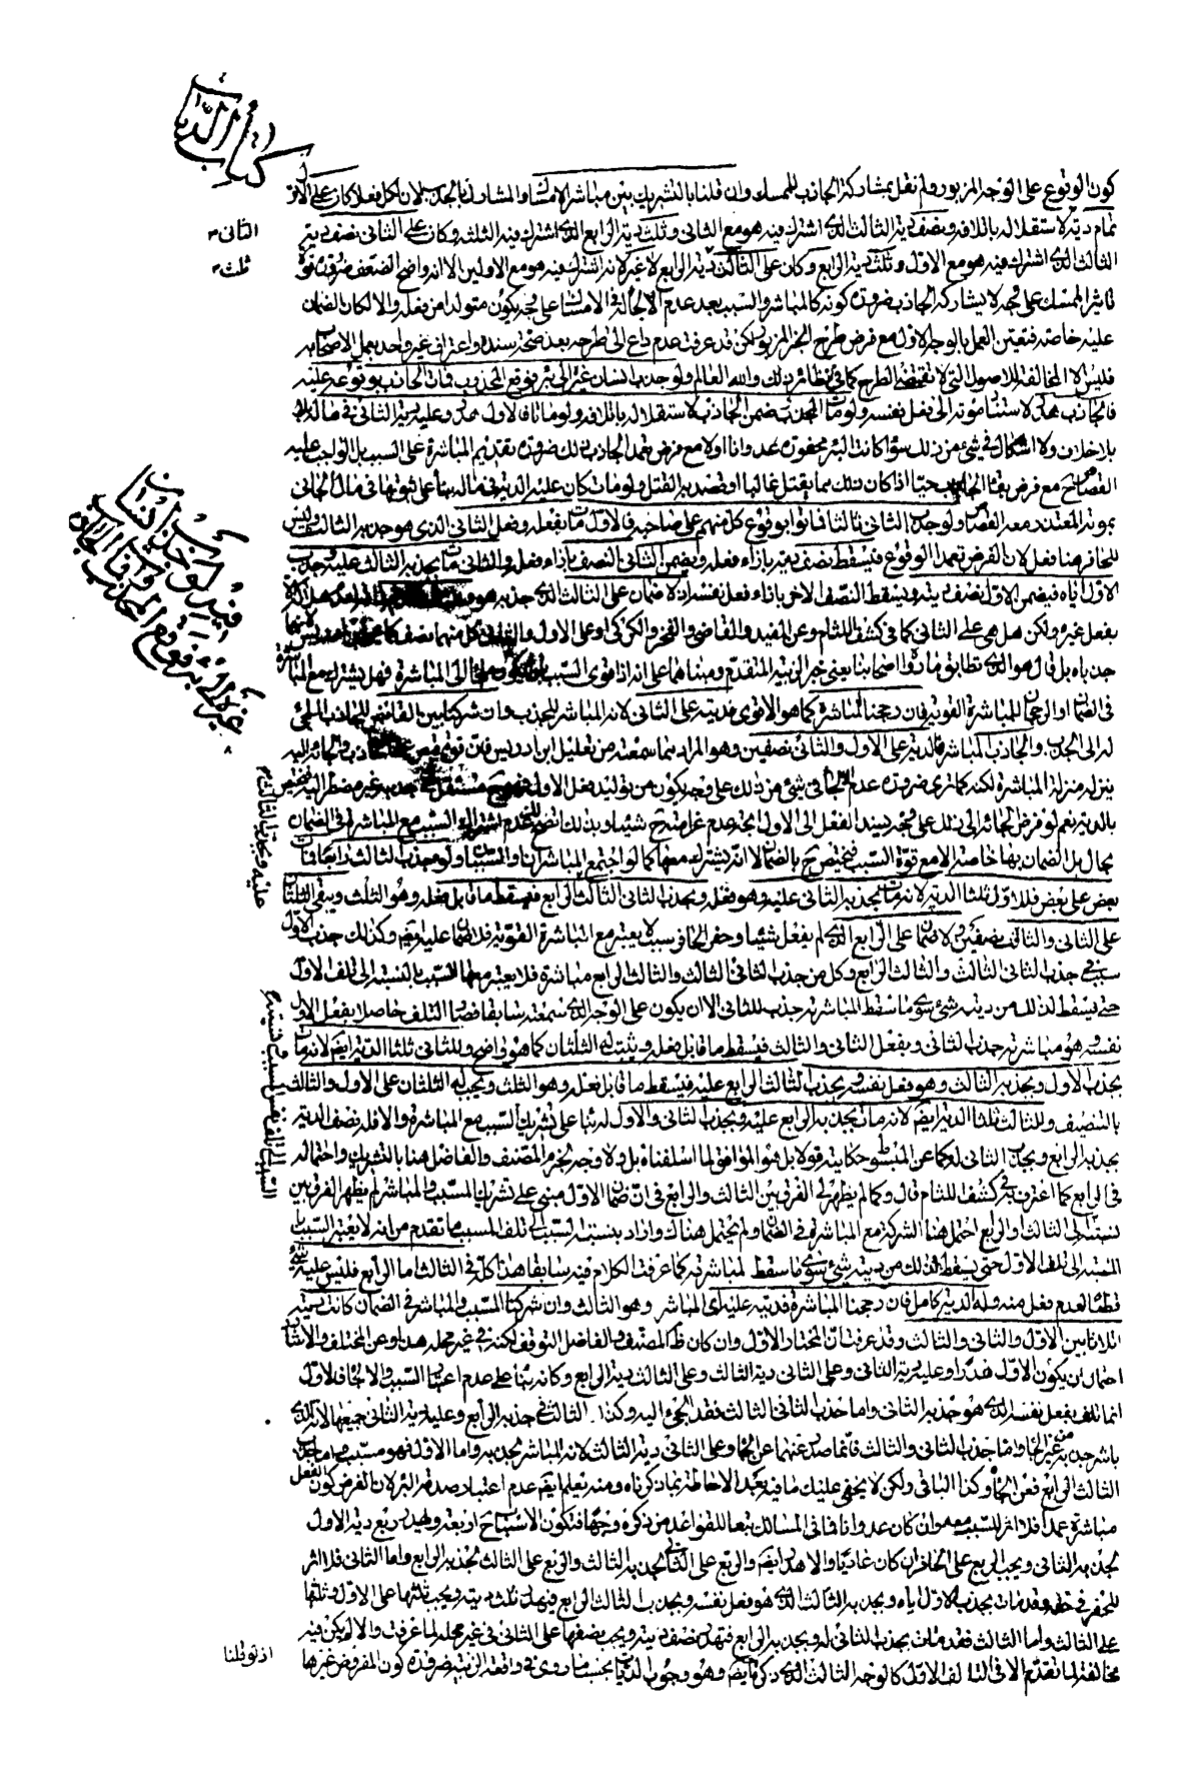 كتاب الديات
كون الوقوع على الوجه المزبور ولم نقل بمشاركة الجاذب للممسك وان قلنا بالتشريك بين مباشر الامساك والمشارك بالجذب لان لكل فعلا كان على الاول
تمام دية لاستقلاله باتلافه ونصف دية الثالث الذي اشترك فيه هو مع الثاني وثلث دية الرابع الذي اشترك فيه الثلثة وكان على الثاني نصف دية
الثاني
الثالث الذي اشترك فيه هو مع الاول وثلث دية الرابع وكان على الثالث دية الرابع لا غير لانه اشترك فيه هو مع الاولين الا انه واضح الضعف ضرورة قوة
ثلث
تاثير الممسك على وجه لا يشاركه الجاذب ضرورة كونه كالمباشر والسبب بعد عدم الالجاء في الامساك على وجه يكون متولدا من فعله والا لكان الضمان
عليه خاصة فتعين العمل بالوجه الاول مع فرض طرح الخبر المزبور لكن قد عرفت عدم داع الى طرحه بعد صحة سنده واعتراف غير واحد بعمل الاصحاب به
فليس الا المخالفة للاصول التي لا تقتضي الطرح كما في نظائر ذلك والله العالم ولو جذب انسان غيره الى بئر فوقع المجذوب فمات الجاذب بوقوعه عليه
فالجاذب هدر لاستناد موته الى فعل نفسه ولو مات المجذوب ضمن الجاذب لاستقلاله باتلافه ولو ماتا فالاول هدر وعليه دية الثاني في ماله
بلا خلاف ولا اشكال في شيء من ذلك سواء كانت البئر محفورة عدوانا اولا مع فرض تعمد الجاذب ذلك ضرورة تقديم المباشرة على السبب بل الواجب عليه
القصاص مع فرض بقاء الجاذب حيا اذا كان ذلك مما يقتل غالبا او قصد به القتل ولو مات كان عليه الدية في ماله بناء على ثبوتها في مال الجاني
بموته المتعذر معه القصاص ولو جذب الثاني ثالثا فماتوا بوقوع كل منهم على صاحبه فالاول مات بفعله وفعل الثاني الذي هو جذبه الثالث وليس
للحافر هنا فعل لان الفرض تعمد الوقوع فيسقط نصف ديته بازاء فعله ويضمن الثاني النصف بازاء فعله والثاني مات بجذبه الثالث عليه وجذب
الاول اياه فيضمن الاول نصف ديته ويسقط النصف الاخر بازاء فعل نفسه ولا ضمان على الثالث الذي جذبه هو
بفعل غيره ولكن هل هي على الثاني كما في كشف اللثام وعن المفيد والقاضي والفخر والكركي او على الاول والثاني كل منهما نصف
جذباه بل قال هو الذي تطابق ما رواه اصحابنا يعني خبر الزبية المتقدم ومبناهما على انه اذا قوى السبب الى المباشرة فهل يشترك مع المباشرة
في الضمان او الرجحان للمباشرة القوية فان رجحنا المباشرة كما هو الاقوى فديته على الثاني لانه المباشر للجذب وان شركنا بين القابض للجاذب الملجئ
له الى الجذب والجاذب المباشر فالدية على الاول والثاني نصفين وهو المراد بما سمعته من تعليل ابن ادريس
ينزله منزلة المباشرة لكنه كما ترى ضرورة عدم الالجاء في شيء من ذلك على وجه يكون من توليد فعل الاول
بالدية نعم لو فرض الجائه الى ذلك على وجه يسند الفعل الى الاول اتجه عدم غرامته شيئا وبذلك اتضح لك عدم اشتراك السبب مع المباشرة في الضمان
بحال بل الضمان بها خاصة الا مع قوة السبب فيختص به الضمان لا انه يشترك معها كما لو اجتمع المباشران والسببان ولو جذب الثالث رابعا فمات
بعض على بعض فللاول ثلثا الدية لانه مات بجذبه الثاني عليه وهو فعله وبجذب الثاني الثالث والثالث الرابع فيسقط ما قابل فعله وهو الثلث ويبقى الثلثان
على الثاني والثالث نصفين ولا ضمان على الرابع الذي لم يفعل شيئا وحفر الحافر سبب لا يعتبر مع المباشرة القوية فلا ضمان عليه ايضا وكذلك جذب الاول
سبب في جذب الثاني الثالث والثالث الرابع وكل من جذب الثاني الثالث والثالث الرابع مباشرة فلا يعتبر معها السبب بالنسبة الى تلف الاول
حتى يسقط لذلك من ديته شيء سوى ما سقط لمباشرته جذب الثاني الا ان يكون على الوجه الذي سمعته سابقا فصار التلف حاصلا بفعل الاول
نفسه وهو مباشرته جذب الثاني وبفعل الثاني والثالث فيسقط ما قابل فعله ويثبت له الثلثان كما هو واضح وللثاني ثلثا الدية ايضا لانه مات
بجذب الاول وبجذبه الثالث وهو فعل نفسه وبجذب الثالث الرابع عليه فيسقط ما قابل فعله وهو الثلث ويجب له الثلثان على الاول والثالث
بالتنصيف وللثالث ثلثا الدية ايضا لانه مات بجذبه الرابع عليه وبجذب الثاني والاول له بناء على تشريك السبب مع المباشرة والا فله نصف الدية
بجذبه الرابع وبجذب الثاني له كما عن المبسوط حكايته قولا بل هو الموافق لما اسلفناه بل ولا وجه لجزم المصنف والفاضل هنا بالتشريك واحتماله
في الرابع كما اعترف به في كشف اللثام قال وكما لم يظهر لي الفرق بين الثالث والرابع في ان ضمان الاول مبني على تشريك المسبب والمباشر لم يظهر الفرق بين
نسبته الى الثالث والرابع احتمل هنا الشركة مع المباشرة في الضمان ولم يحتمل هناك واراد بنسبة السبب الى تلف المسبب ما تقدم من انه لا يعتبر السبب
بالنسبة الى تلف الاول حتى يسقط لذلك من ديته شيء سوى ما سقط لمباشرته كما عرفت الكلام فيه سابقا هذا كله في الثالث اما الرابع فليس عليه شيء
قطعا لعدم فعل منه وله الدية كاملة فان رجحنا المباشرة فديته عليه اي المباشر وهو الثالث وان شركنا المسبب والمباشر في الضمان كانت ديته
اثلاثا بين الاول والثاني والثالث وقد عرفت ان المختار الاول وان كان ظاهر المصنف والفاضل التوقف لكنه في غير محله هذا وعن المختلف والارشاد
احتمال ان يكون الاول هدرا وعليه دية الثاني وعلى الثاني دية الثالث وعلى الثالث دية الرابع وكانه بناء على عدم اعتبار السبب والالجاء فالاول
انما تلف بفعل نفسه الذي هو جذبه الثاني واما جذب الثاني الثالث فقد الجئ اليه وكذا الثالث في جذبه الرابع وعليه دية الثاني جميعها لانه الذي
باشر جذبه من غير الجاء واما جذب الثاني والثالث فانما صدر عنهما عن الجاء وعلى الثاني دية الثالث لانه المباشر لجذبه واما الاول فهو مسبب واما جذب
الثالث الرابع فعن الجاء وكذا الباقي ولكن لا يخفى عليك ما فيه بعد الاحاطة بما ذكرناه ومنه يعلم ايضا عدم اعتبار صدمة البئر لان الفرض كون الفعل
مباشرة عمدا فلا اثر للسبب معه وان كان عدوانا فما في المسالك تبعا للقواعد من ذكره وجها فتكون الاسباب ح اربعة ويهدر ربع دية الاول
بجذبه الثاني ويجب الربع على الحافر ان كان عاديا والا هدر ايضا والربع على الثاني لجذبه الثالث والربع على الثالث لجذبه الرابع واما الثاني فلا اثر
للحفر في حقه وقد مات بجذب الاول اياه وبجذبه الثالث الذي هو فعل نفسه وبجذب الثالث الرابع فيهدر ثلث ديته ويجب ثلثها على الاول وثلثها
على الثالث واما الثالث فقد مات بجذب الثاني له وبجذبه الرابع فتهدر نصف ديته ويجب نصفها على الثاني في غير محله لما عرفت والا لم يكن فيه
مخالفة لما تقدم الا في التالف الاول كالوجه الثالث الذي ذكره ايضا وهو وجوب الديات بحسب ما روي في واقعة الزبية ضرورة كون المفروض غيرها
اذ لو قلنا